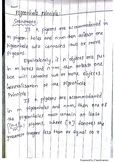 Pigeonhole Principle
Statement:
If n pigeons are accommodated
in m pigeon holes and n > m then at least one
pigeonhole will contain two or more
pigeons.
Equivalently, if n objects are put
in m boxes and n > m then at least one
box will contain two or more objects.
Generalization of the Pigeonhole
Principle:
If n pigeons are accommodated
in m pigeonholes and n > m, then one of
the pigeonholes must contain at least
pigeons, where [x] denotes the
greatest integer less than or equal to x